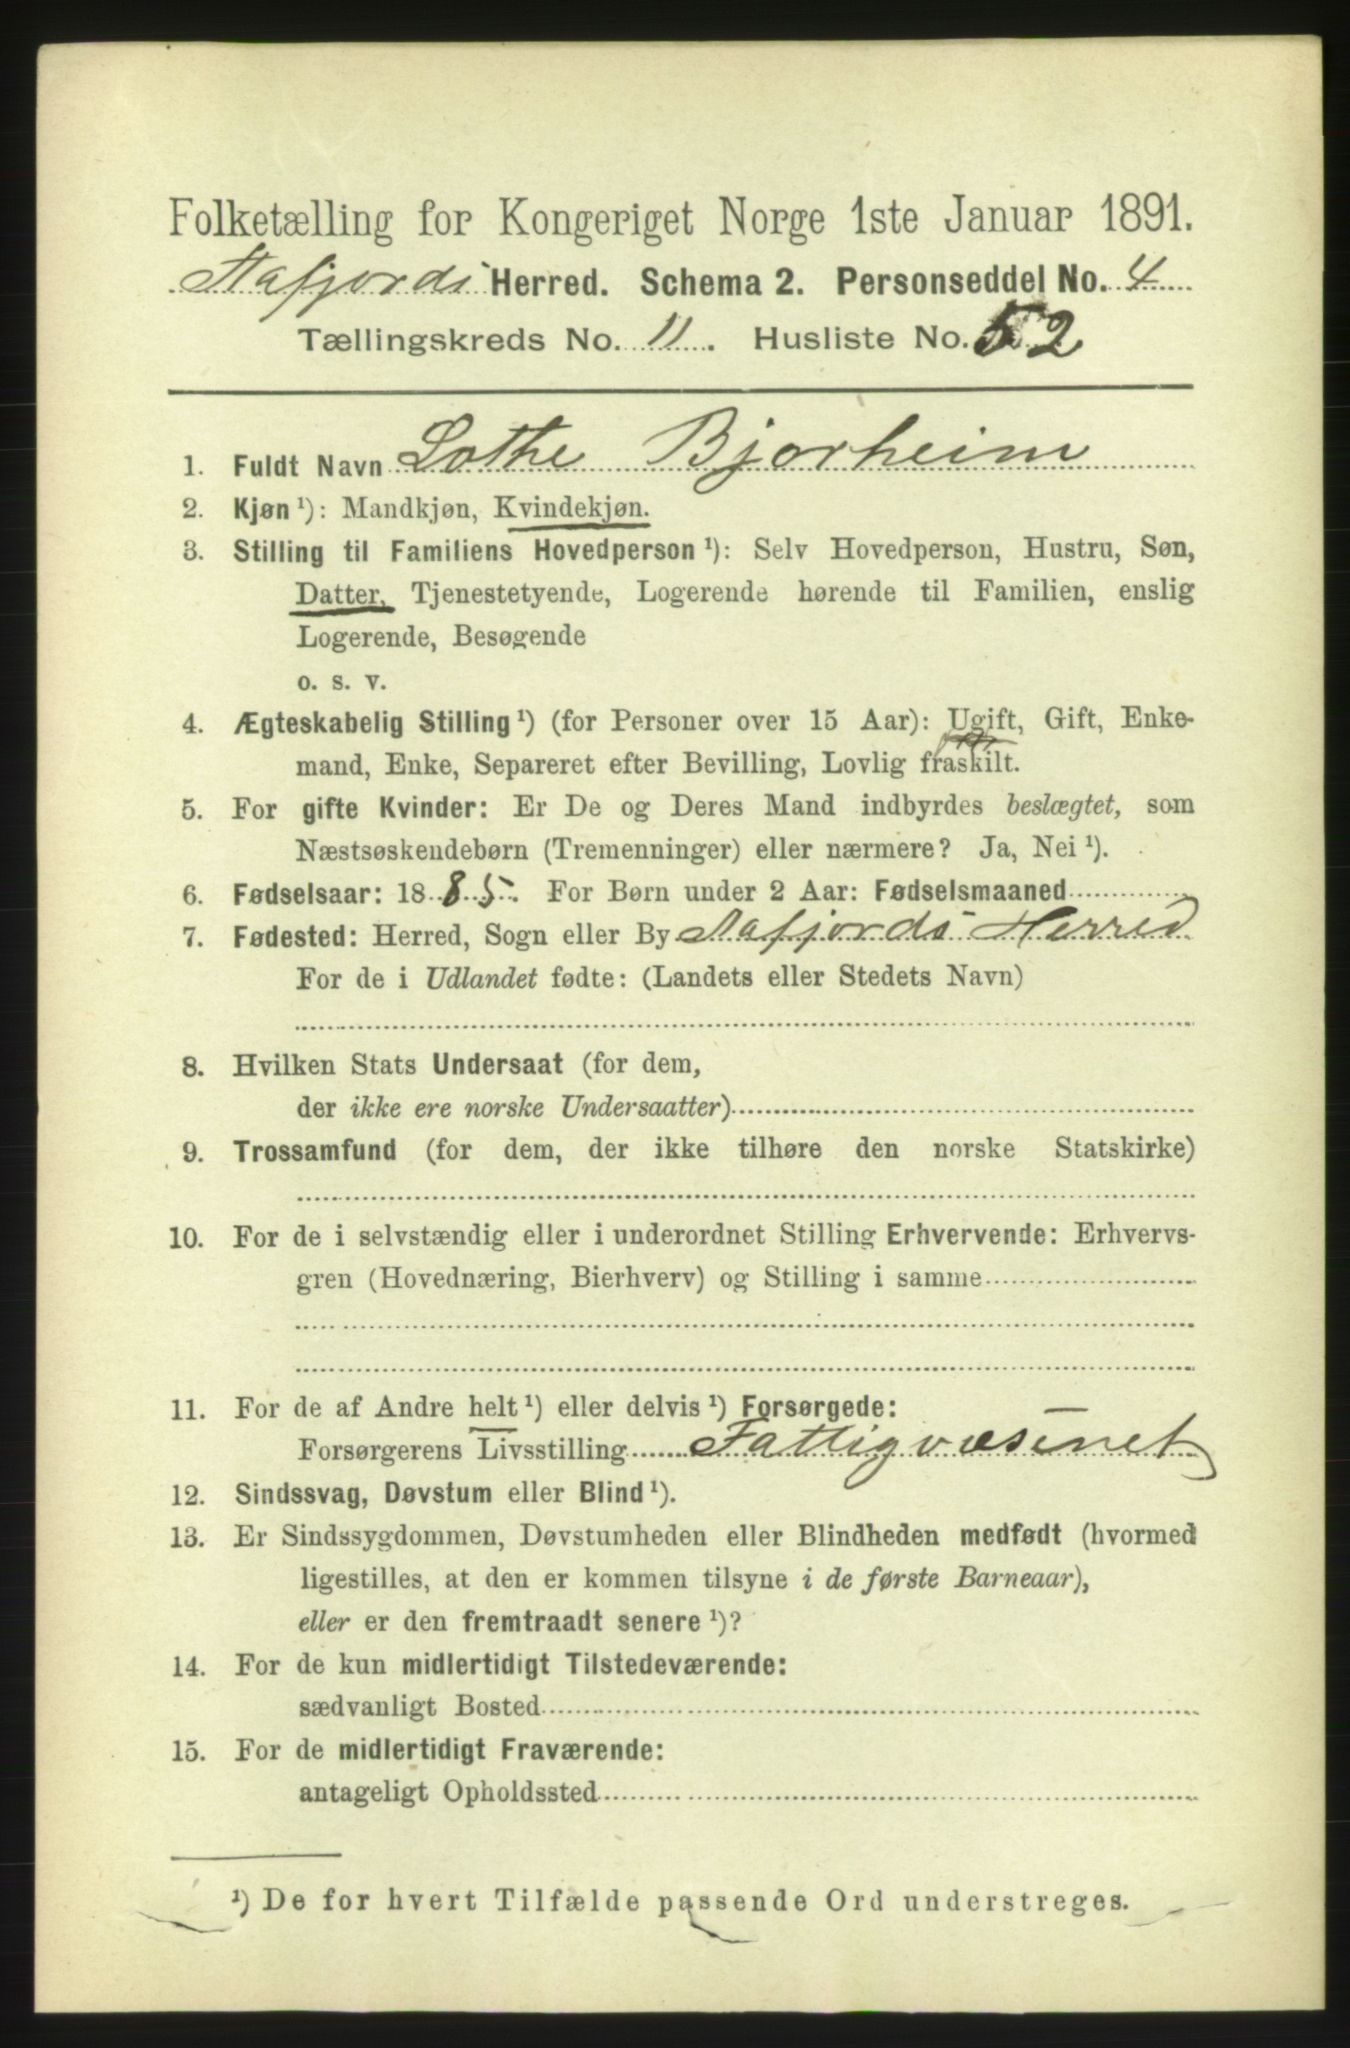 Folketælling for Kongeriget Norge 1ste Januar 1891.
Aafjords Herred. Schema 2. Personseddel No. 4
Tællingskreds No. 11. Husliste No. 52
1. Fuldt Navn Lothe Bjorheim
2. Kjøn ¹): Mandkjøn, Kvindekjøn.
3. Stilling til Familiens Hovedperson ¹): Selv Hovedperson, Hustru, Søn,
Datter, Tjenestetyende, Logerende hørende til Familien, enslig
Logerende, Besøgende
o. s. v.
4. Ægteskabelig Stilling ¹) (for Personer over 15 Aar): Ugift, Gift, Enke-
mand, Enke, Separeret efter Bevilling, Lovlig fraskilt.
5. For gifte Kvinder: Er De og Deres Mand indbyrdes beslægtet, som
Næstsøskendebørn (Tremenninger) eller nærmere? Ja, Nei ¹).
6. Fødselsaar: 1885. For Børn under 2 Aar: Fødselsmaaned
7. Fødested: Herred, Sogn eller By Aafjords Herred
For de i Udlandet fødte: (Landets eller Stedets Navn)
8. Hvilken Stats Undersaat (for dem,
der ikke ere norske Undersaatter)
9. Trossamfund (for dem, der ikke tilhøre den norske Statskirke)
10. For de i selvstændig eller i underordnet Stilling Erhvervende: Erhvervs-
gren (Hovednæring, Bierhverv) og Stilling i samme
11. For de af Andre helt ¹) eller delvis ¹) Forsørgede:
Forsørgerens Livsstilling Fattigvæsenet
12. Sindssvag, Døvstum eller Blind ¹).
13. Er Sindssygdommen, Døvstumheden eller Blindheden medfødt (hvormed
ligestilles, at den er kommen tilsyne i de første Barneaar),
eller er den fremtraadt senere ¹)?
14. For de kun midlertidigt Tilstedeværende:
sædvanligt Bosted
15. For de midlertidigt Fraværende:
antageligt Opholdssted
¹) De for hvert Tilfælde passende Ord understreges.